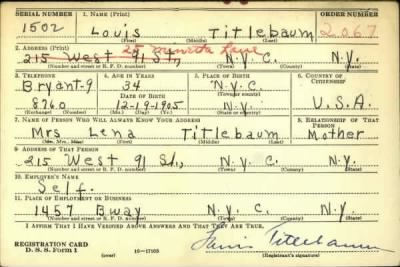 SERIAL NUMBER 1. NAME (Print) ORDER NUMBER
1502 Louis Titlebaum 2067
(First) (Middle) (Last)
25 Minetta Lane
2. ADDRESS (Print)
215 West 91 St., N.Y.C. N.Y.
(Number and street or R. F. D. number) (Town) (County) (State)
3. TELEPHONE 4. AGE IN YEARS 5. PLACE OF BIRTH 6. COUNTRY OF CITIZENSHIP
Bryant-9 34 N.Y.C.
DATE OF BIRTH (Town or county)
8760 12-19-1905 N.Y. U.S.A.
(Exchange) (Number) (Mo.) (Day) (Yr.) (State or country)
7. NAME OF PERSON WHO WILL ALWAYS KNOW YOUR ADDRESS 8. RELATIONSHIP OF THAT PERSON
Mrs Lena Titlebaum Mother
(Mr., Mrs., Miss) (First) (Middle) (Last)
9. ADDRESS OF THAT PERSON
215 West 91 St., N.Y. C. N.Y.
(Number and street or R. F. D. number) (Town) (County) (State)
10. EMPLOYER'S NAME
Self.
11. PLACE OF EMPLOYMENT OR BUSINESS
1457 Bway N.Y. C. N.Y.
(Number and street or R. F. D. number) (Town) (County) (State)
I AFFIRM THAT I HAVE VERIFIED ABOVE ANSWERS AND THAT THEY ARE TRUE.
REGISTRATION CARD
D. S. S. Form 1 (over) 16—17105 Louis Titlebaum
(Registrant's signature)